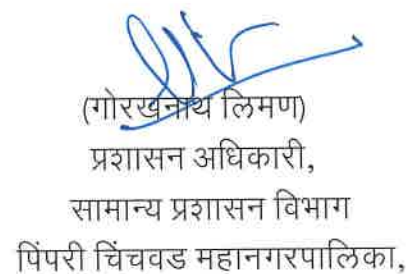 (गोरखनाथ लिमण)
प्रशासन अधिकारी,
सामान्य प्रशासन विभाग
पिंपरी चिंचवड महानगरपालिका,